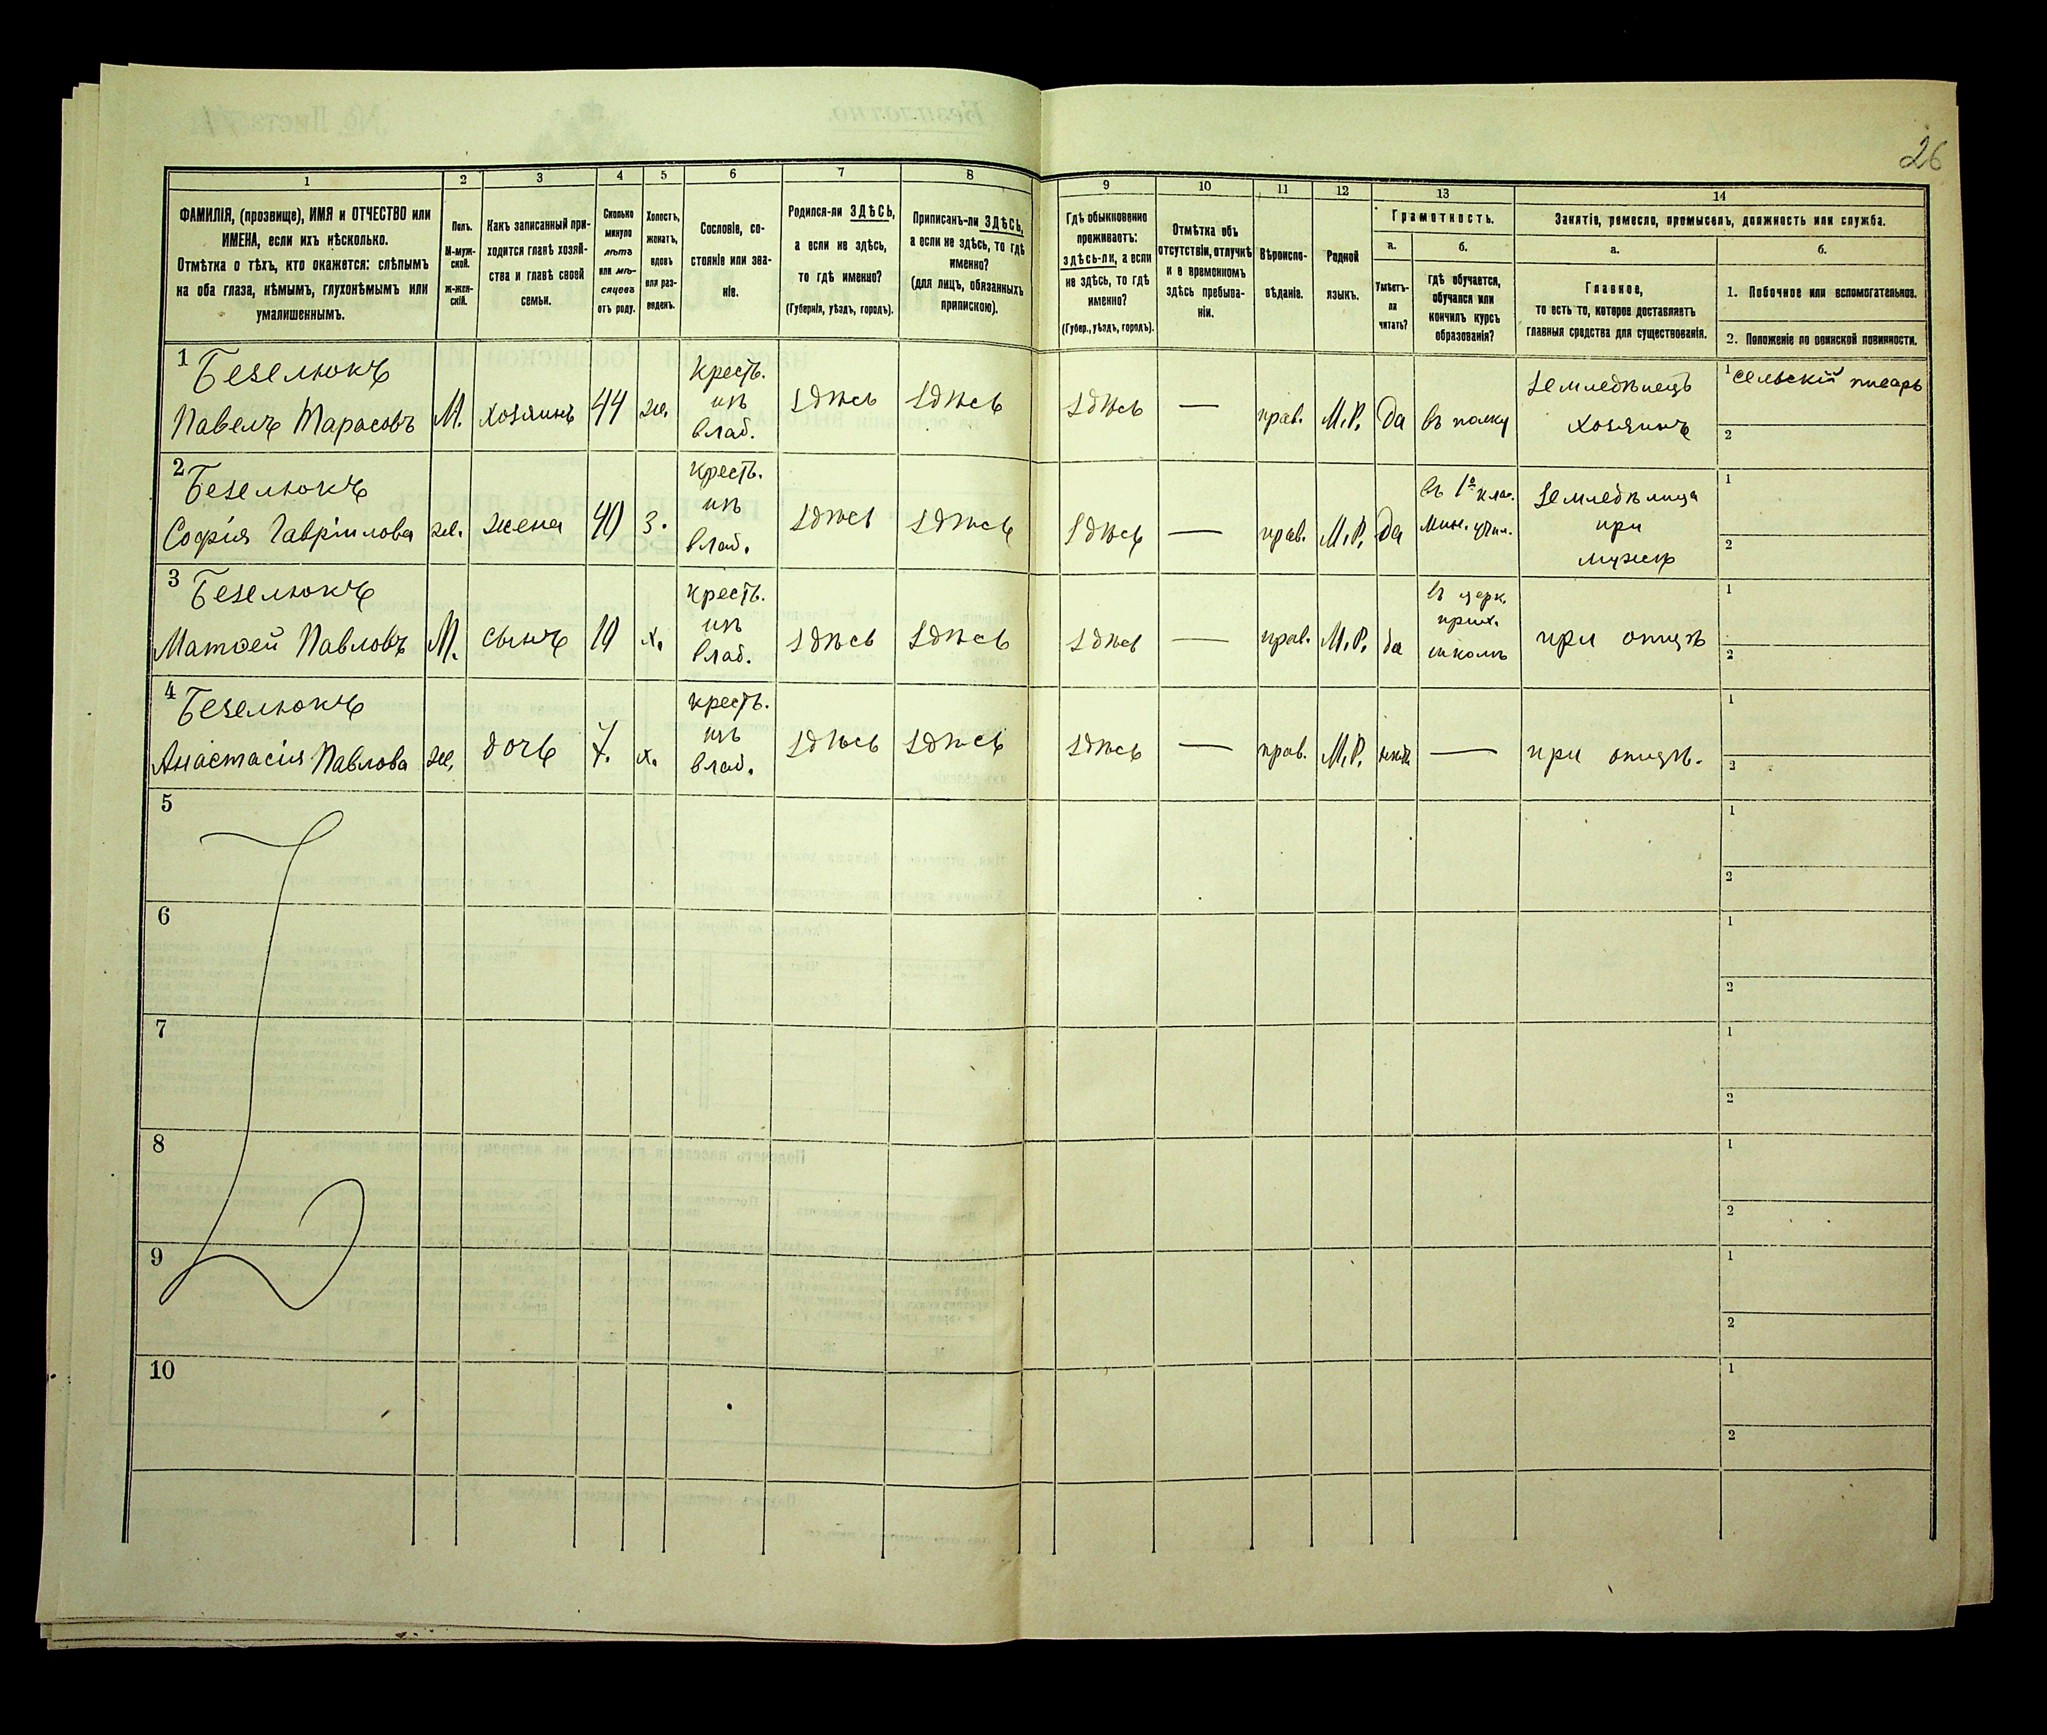 26
1 2 3 4 5 6 7 8 9 10 11 12 13 14
ФАМИЛІЯ, (прозвище), ИМЯ и ОТЧЕСТВО или
ИМЕНА, если ихъ нѣсколько.
Отмѣтка о тѣхъ, кто окажется: слѣпымъ
на оба глаза, нѣмымъ, глухонѣмымъ или
умалишеннымъ.
Полъ.
М-муж-
ской.
ж-жен-
скій.
Какъ записанный при-
ходится главѣ хозяй-
ства и главѣ своей
семьи.
Сколько
минуло
лѣтъ
или мѣ-
сяцевъ
отъ роду.
Холостъ,
женатъ,
вдовъ
или раз-
веденъ.
Сословіе, со-
стояніе или зва-
ніе.
Родился-ли ЗДѢСЬ,
а если не здѣсь,
то гдѣ именно?
(Губернія, уѣздъ, городъ).
Приписанъ-ли ЗДѢСЬ,
а если не здѣсь, то гдѣ
именно?
(для лицъ, обязанныхъ
припискою).
Гдѣ обыкновенно
проживаетъ:
здѣсь-ли, а если
не здѣсь, то гдѣ
именно?
(Губер., уѣздъ, городъ).
Отмѣтка объ
отсутствіи, отлучкѣ
и о временномъ
здѣсь пребыва-
ніи.
Вѣроиспо-
вѣданіе.
Родной
языкъ.
Грамотность.
а.
Умѣетъ-
ли
читать?
б.
гдѣ обучается,
обучался или
кончилъ курсъ
образованія?
Занятіе, ремесло, промыселъ, должность или служба.
а.
Главное,
то есть то, которое доставляетъ
главныя средства для существованія.
б.
1. Побочное или вспомогательное.
2. Положеніе по воинской повинности.
1 Безелюкъ
Павелъ Тарасовъ М. хозяинъ 44 же. крестъ. изъ влад. здѣсь здѣсь здѣсь — прав. М.Р. да въ полку земледѣлецъ хозяинъ 1 сельскій писарь
2
2 Безелюкъ
Софія Гавріилова же. жена 40 З. крестъ. изъ влад. здѣсь здѣсь здѣсь — прав. М.Р. да въ 1о клас. Мин. учил. земледѣлица при мужѣ 1
2
3 Безелюкъ
Матѳей Павловъ М. сынъ 10 х. крестъ. изъ влад. здѣсь здѣсь здѣсь — прав. М.Р. да въ церк. прих. школѣ при отцѣ 1
2
4 Безелюкъ
Анастасія Павлова же. дочь 7. х. крестъ. изъ влад. здѣсь здѣсь здѣсь — прав. М.Р. — при отцѣ. 1
2
5 1
2
6 1
2
7 1
2
8 1
2
9 1
2
10 1
2